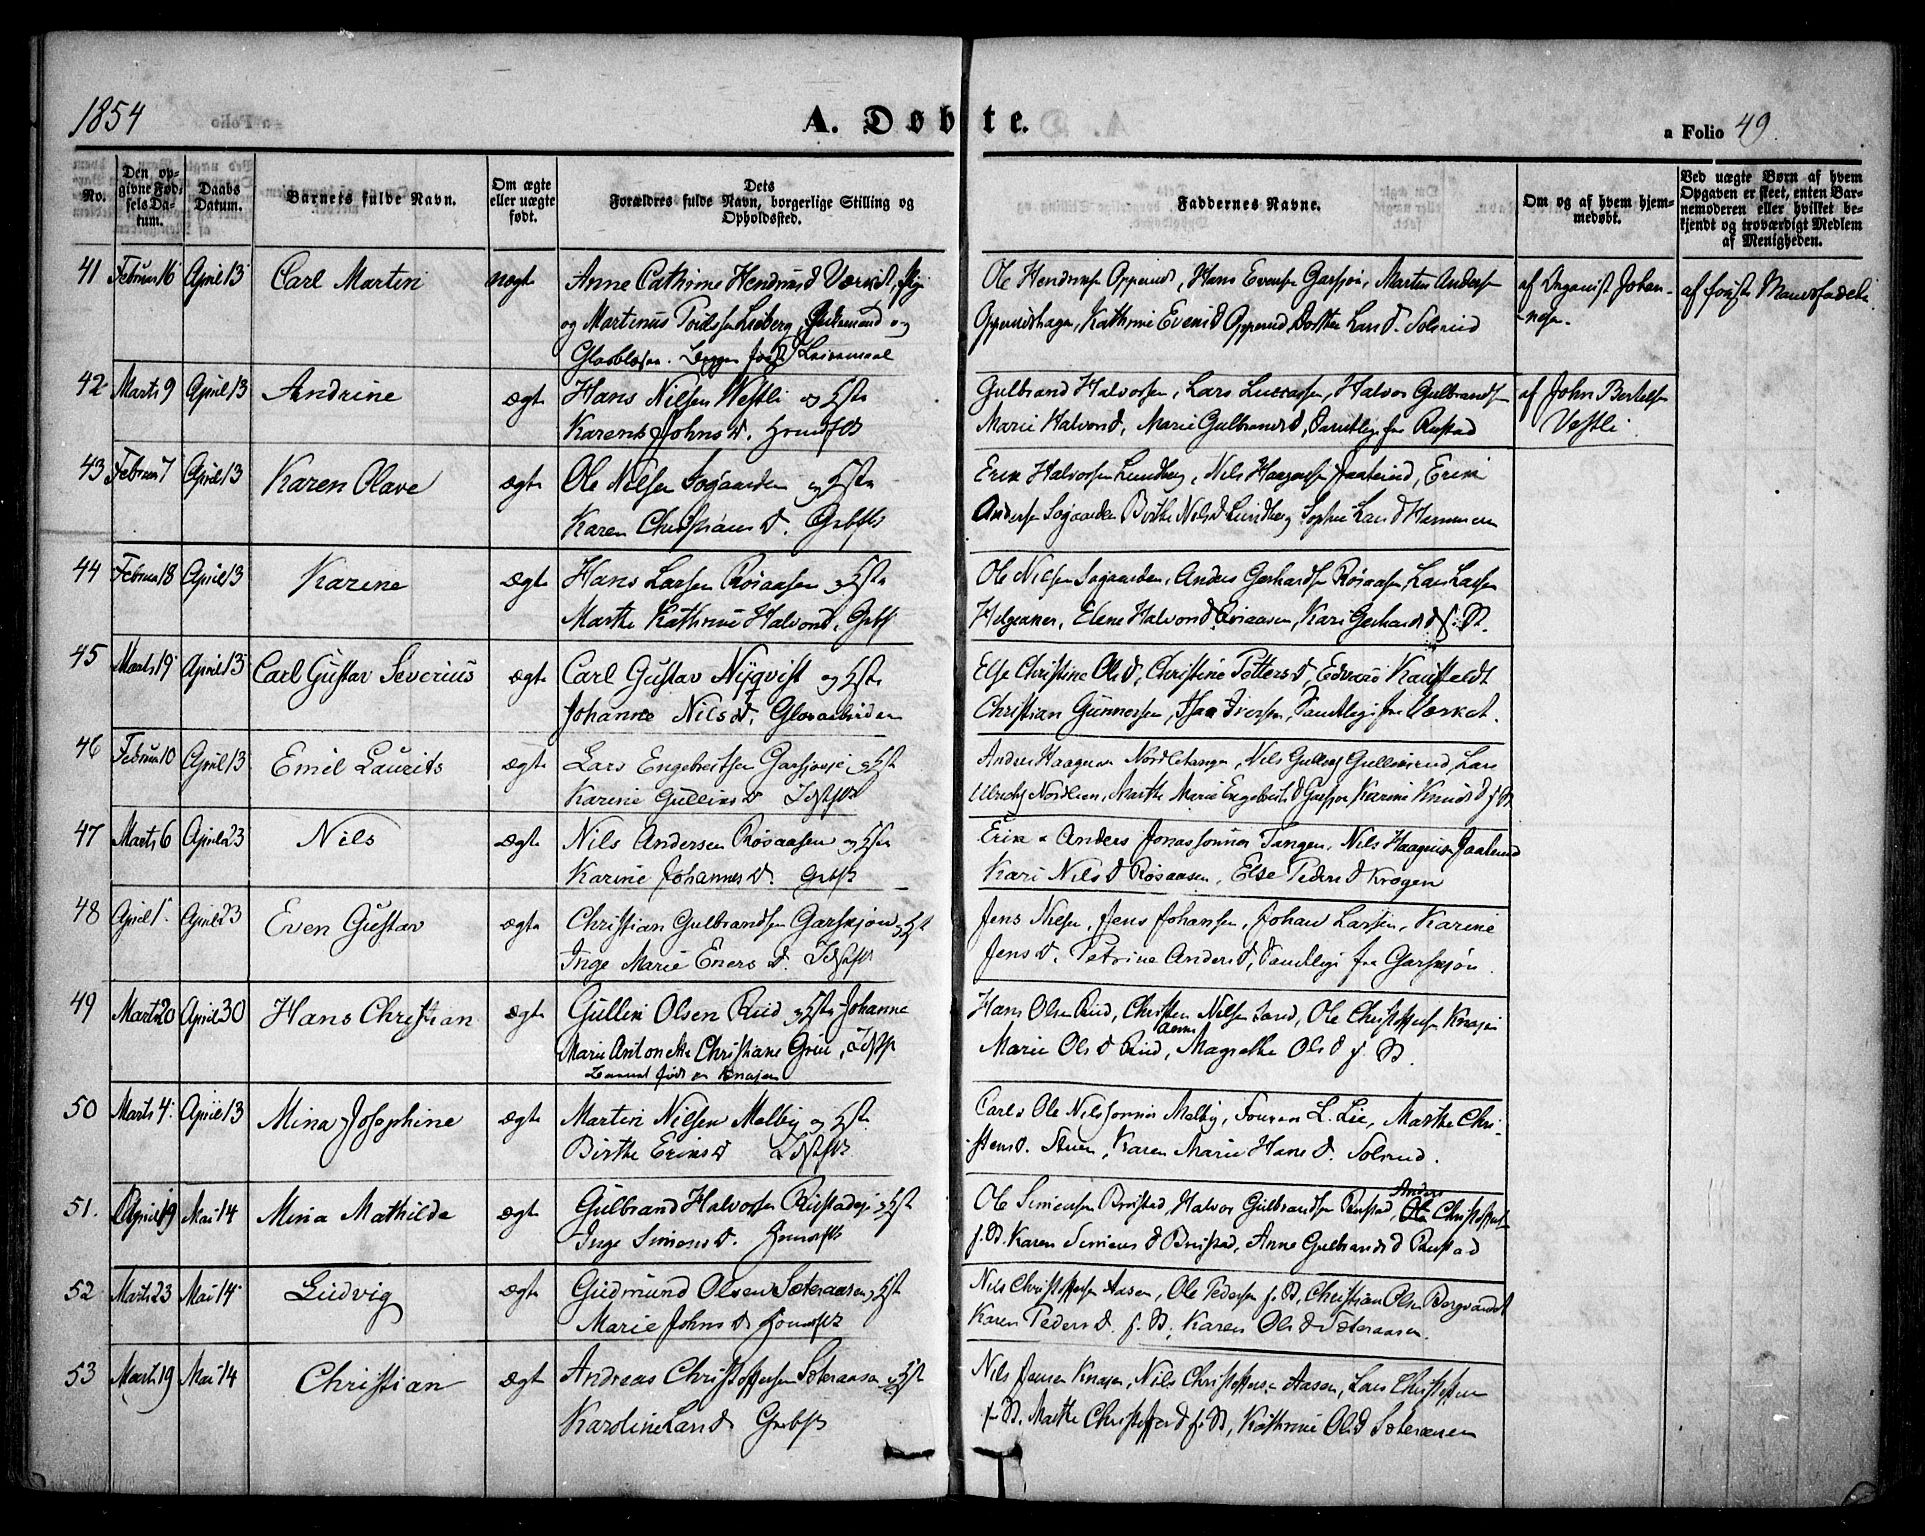 1854
A. Døbte.
a Folio 49.
No.
Den op-
givne Fød-
sels Da-
tum.
Daabs
Datum.
Barnets fulde Navn.
Om ægte
eller uægte
født.
Dets
Forældres fulde Navn, borgerlige Stilling og
Opholdssted.
Faddernes Navne.
Om og af hvem hjem-
medøbt.
Ved uægte Børn af hvem
Opgaven er skeet, enten Bar-
nemoderen eller hvilket be-
kjendt og troværdigt Medlem
af Menigheden.
41 Februar 16 April 13 Carl Martin uægte Anne Cathrine
og Martinus
Ole Hendriksen Opperud, Hans Evensen Garsjøe, Martin Andersen
Opperudhagen, Kathrine Evensd Opperud, Larsd. Solerud
af Organist Johan-
nesen.
af
42 Marts 9 April 13 Andrine ægte Hans Nilsen Westli og Hstr
Karen Johnsd.
Gulbrand Halvorsen, Lars Lucassen, Halvor Gulbrandsen
Marie Halvorsd, Marie Gulbrandsd, Samtlige fra Rustad
af John Bertelsen
Vestli
43 Februar 7 April 13 Karen Olave ægte Ole Nilsen Sogaarden og Hstr
Karen Christiansd. Grbfst
Erik Halvorsen Lundberg, Nils Haagensen Jaaterud, Erik
Andersen Sogaarden Birthe Nilsd Lundberg Sophie Larsd
44 Februar 18 April 13 Karine ægte Hans Larsen Rosaasen og Hstr
Marthe Kathrine Halvorsd, Grbf
Ole Nilsen Sogaarden, Anders Gerhardsen Rosaasen, Lars Larsen
Helgeager, Elene Halvorsd Rosaasen, Kari Gerhardsd f. St.
45 Marts 19 April 13 Carl Gustav Severius ægte Carl Gustav Nyqvist og Hstr
Johanne Nilsd, Glasarbeider
Else Christine Olsd, Christine Pettersd, Edvard Kauffeldt
Christian Gunnersen, Isaa Iversen, Samtlige fra Værket.
46 Februar 10 April 13 Emil Laurits ægte Lars Engebretsen Garsjøeje og Hstr
Karine Gulliksd
Anders Haagensen Nordletangen, Nils Gulliksrud, Lars
Nordlien, Marthe Marie Engebretsd Garsjøe Karine Knudsd f. St
47 Marts 6 April 23 Nils ægte Nils Andersen Rosaasen og Hstr
Karine Johannesd. Grbfst
Erik & Anders Jonassønner Tangen, Nils Haagensen Jaaterud
Kari Nilsd Rosaasen, Else Pedersd Krogen
48 April 1. April 23 Even Gustav ægte Christian Gulbrandsen Garsjøen og Hst
Inge Marie Eners d.
Jens Nielsen, Jens Johansen, Johan Larsen, Karine
Jensd. Petrine Andersd, Samtlige fra Garsjøn.
49 Marts 20 April 30 Hans Christian ægte Gullik Olsen Rud og Hstr Johanne
Marie Antonette Christiane
Barnet født paa Knajen
Hans Olsen Rud, Christen Nilsen, Ole Christoffersen Knajen
Marie Olsd Rud, Anne Magrethe Olsd f. St.
50 Marts 4. April 13 Mina Josephine ægte Martin Nilsen Melby og Hstr
Birthe Eriksd
Carl & Ole Nilssønner Melby, L. Lie, Marthe Chri-
stensd. Stuen, Karen Marie Hansd. Solerud.
51. April 19 Mai 14 Mina Mathilde ægte Gulbrand Halvorsen Rustadeje og Hst
Inge Simensd.
Ole Simensen Brustad, Halvor Gulbrandsen Rustad, Anders Christoffersen
f. St. Karen Simensd Brustad, Anne Gulbrandsd Rustad
52 Marts 23 Mai 14 Ludvig ægte Gudmund Olsen Sæteraasen og Hst
Marie Johnsd
Nils Christoffersen Aasen, Ole Pedersen f. St, Christian Olsen
Karen Pedersd. f. St, Karen Olsd Sæteraasen.
53 Marts 19 Mai 14 Christian ægte Andreas Christoffersen Sæteraasen og Hst
Karoline Larsd Grubfst
Nils Jensen Knajen, Nils Christoffersen Aasen, Lars Christoffersen
f. St. Marthe Christoffersd f. St, Kathrine Olsd Sæteraasen